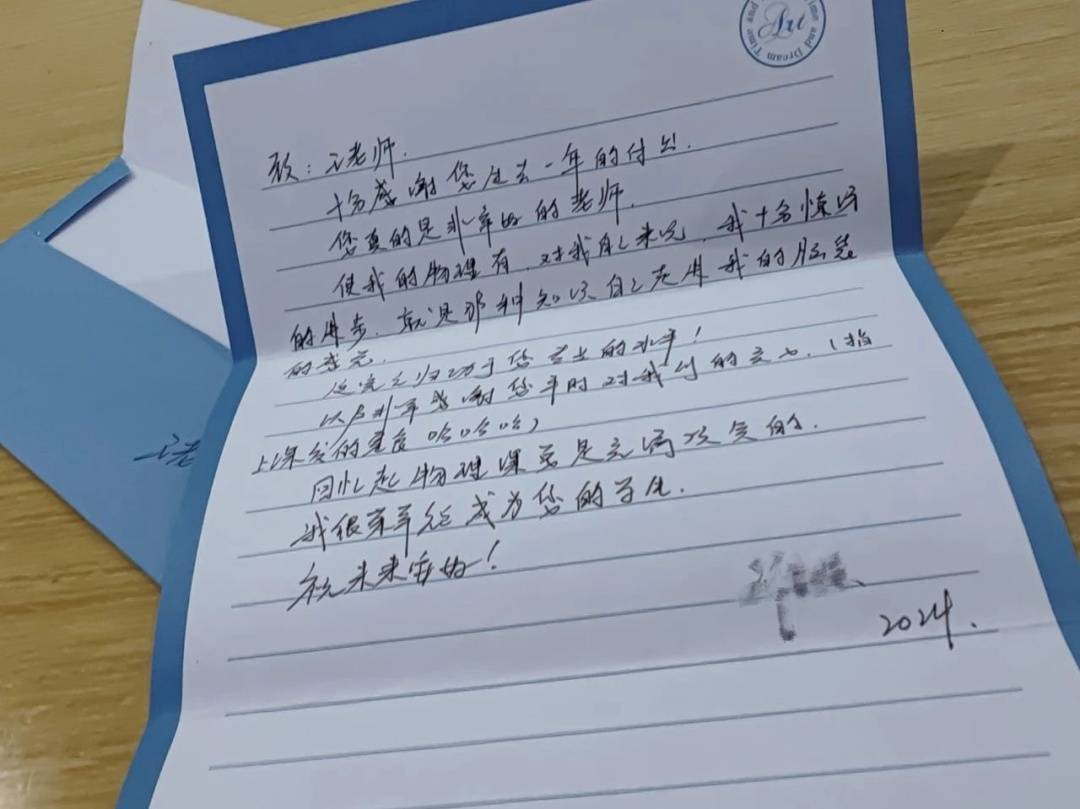 Time and Dream Time and
Art
致：王老师.
十分感谢您过去一年的付出.
您真的是非常好的老师.
使我的物理有，对我自己来说，我十分惊讶
的进步，就是那种知识自己走进我的脑袋
的感觉.
这完全归功于您高超的水平！
以及非常感谢您平时对我们的关心.（指
上课发的零食 哈哈哈）
回忆起物理课总是充满欢笑的.
我很荣幸能成为您的学生.
祝未来安好！
2024.
王老